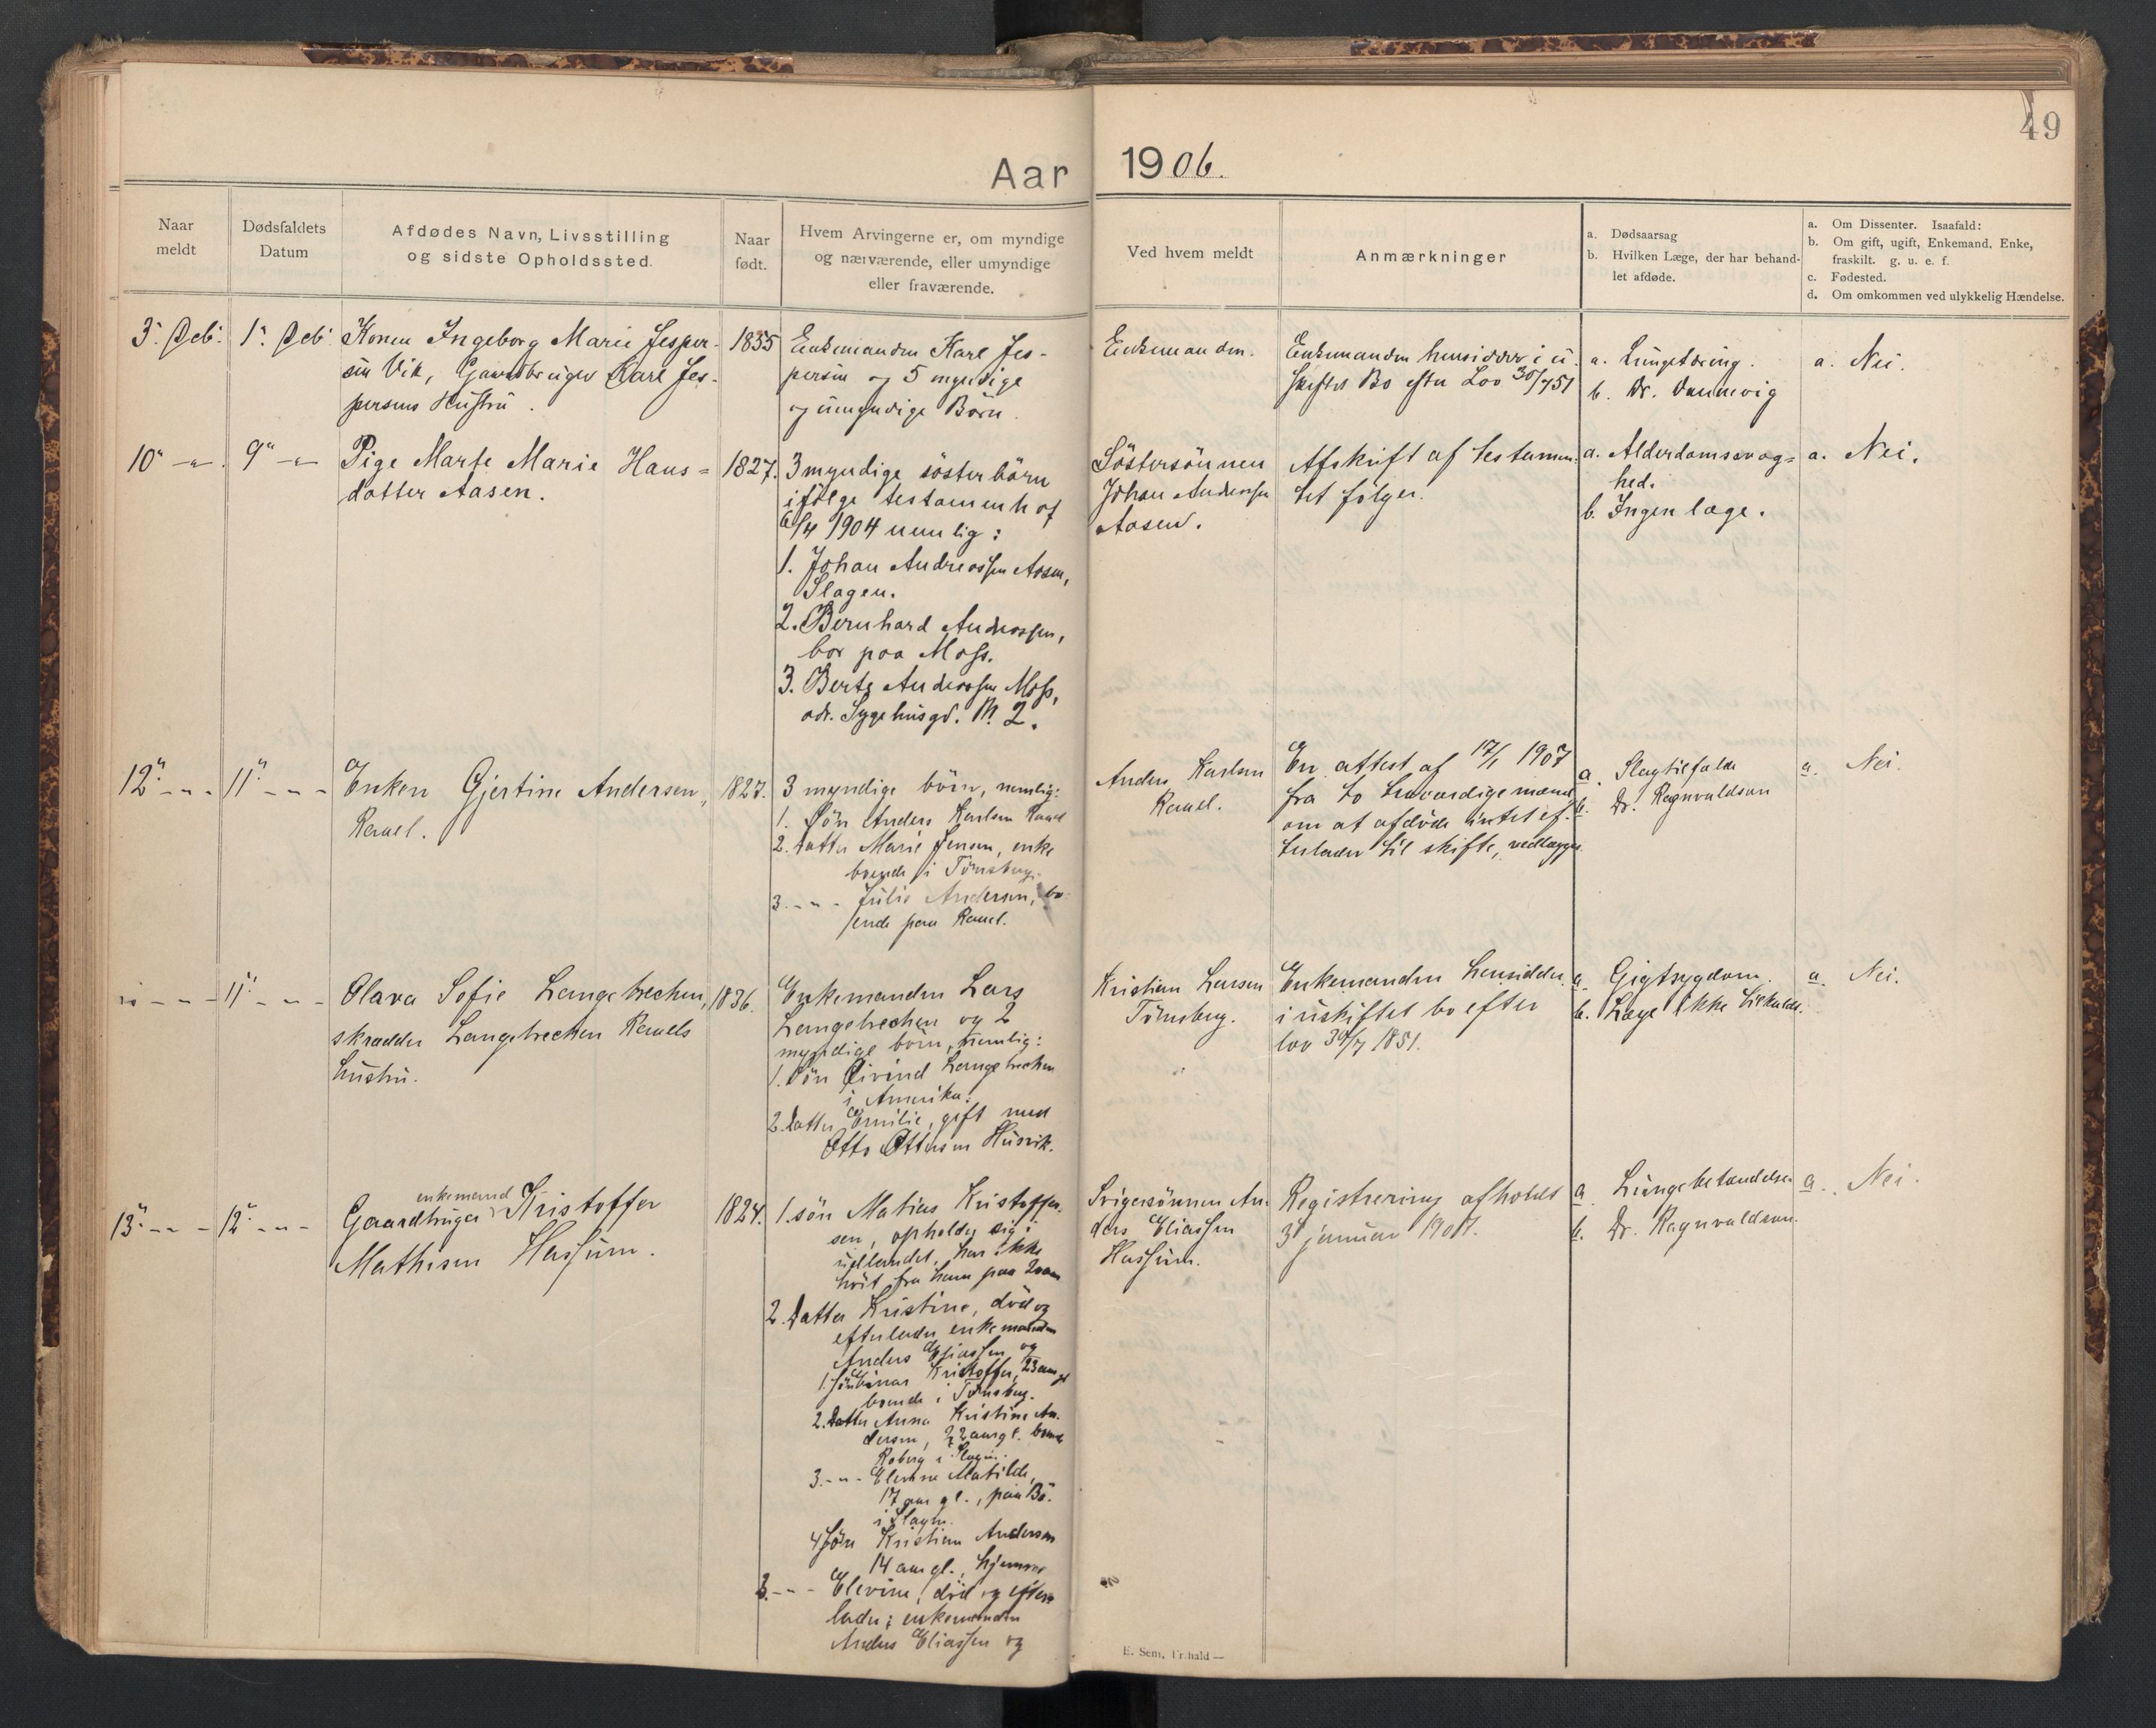 49
Aar 1906.
Naar meldt
Dødsfaldets Datum
Afdødes Navn, Livsstilling
og sidste Opholdssted.
Naar født.
Hvem Arvingerne er, om myndige
og nærværende, eller umyndige
eller fraværende.
Ved hvem meldt
Anmærkninger
a. Dødsaarsag
b. Hvilken Læge, der har behand-
let afdøde.
a. Om Dissenter. Isaafald:
b. Om gift, ugift, Enkemand. Enke,
fraskilt. g. u. e. f.
c. Fødested.
d. Om omkommen ved ulykkelig Hændelse.
3. Deb. 1. Deb.
Konen Ingeborg Marie Jesper-
sen Vik, Gaardbruger Karl Jes-
persens Hustru.
1855
Enkemanden Karl Jes-
persen og 5 myndige
og umyndige Börn.
Enkemanden.
Enkemanden hensidder i u-
skiftet Bo efter Lov 30/7 51
a. Lungetæring.
b. Dr. Dannevig
a. Nei.
10" — " — 9" — " —
Pige Marte Marie Hans=
datter Aasen.
1827.
3 myndige søsterbörn
ifölge testament af
6/4 1904 nemlig:
1. Johan Andreassen Aasen,
Slagen.
2. Bernhard Andreassen,
bor paa Moss.
3. Berte Andreassen Moss,
adr. Sygehusgd. № 2.
Söstersönnen
Johan Andreassen
Aasen.
Afskrift af testamen-
tet følger.
a. Alderdomssvag=
hed.
b. Ingen læge.
a. Nei.
12" - " - 11" - " -
Enken Gjertine Andersen,
Ramel.
1827.
3 myndige börn, nemlig:
1. Sön Anders Karlsen Ramel
2. Datter Marie Jensen, enke
boende i Tönsberg.
3. - " - Julie Andersen, bo-
ende paa Ramel.
Anders Karlsen
Ramel.
En attest af 17/1 1907
fra to troværdige mænd
om at afdöde intet ef-
terlader til skifte, vedlægges
a. Slagtilfælde
b. Dr. Ragnvaldson
a. Nei.
" - " - 11" - " -
Olava Sofie Langebrechen,
skrædder Langebrechen Ramels
hustru.
1836.
Enkemanden Lars
Langebrechen og 2
myndige börn, nemlig:
1. Sön Eivind Langebrechen
i Amerika.
2. Datter Emilie, gift med
Otto Ottersen Husvik.
Kristian Larsen
Tönsberg.
Enkemanden hensidder
i uskiftet bo efter
lov 30/7 1851.
a. Gigtsygdom.
b. Læge ikke tilkaldt.
a. Nei.
13" - " - 12" - " -
enkemand
Gaardbruger Kristoffer
Mathisen Hassum.
1824.
1. sön Matias Kristoffer-
sen, opholder sig i
udlandet, har ikke
hört fra ham paa aar
2. Datter Kristine, död og
efterlader enkemanden
Anders Eliassen og
1. Sön Kristoffer, 23 aar gl
boende i Tönsberg.
2. Datter Anna Kristine An-
dersen, 22 aar gl. boende
Roberg i Slagen.
3. - " - Matilde,
17 aar gl., paa Bö.
i Slagen.
4 Sön Kristian Andersen
14 aar gl., hjemme
3. - " - Elevine, död og efter-
lader: enkemanden
Anders Eliassen og
Svigersönnen An-
ders Eliassen
Hassum.
Registrering afholdt
3 januar 1907.
a. Lungebetændelse
b. Dr. Ragnvaldson.
a. Nei.
E. Sem, Fr.hald —